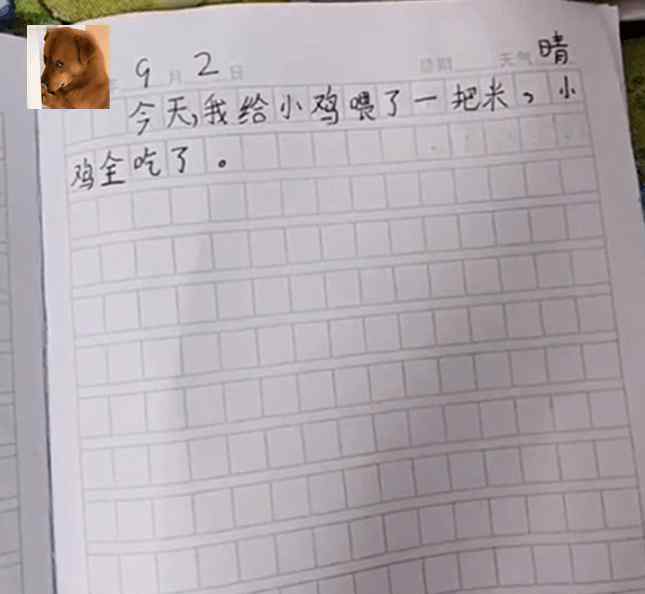 年 9 月 2 日 星期 天气 晴
今天,我给小鸡喂了一把米，小
鸡全吃了。